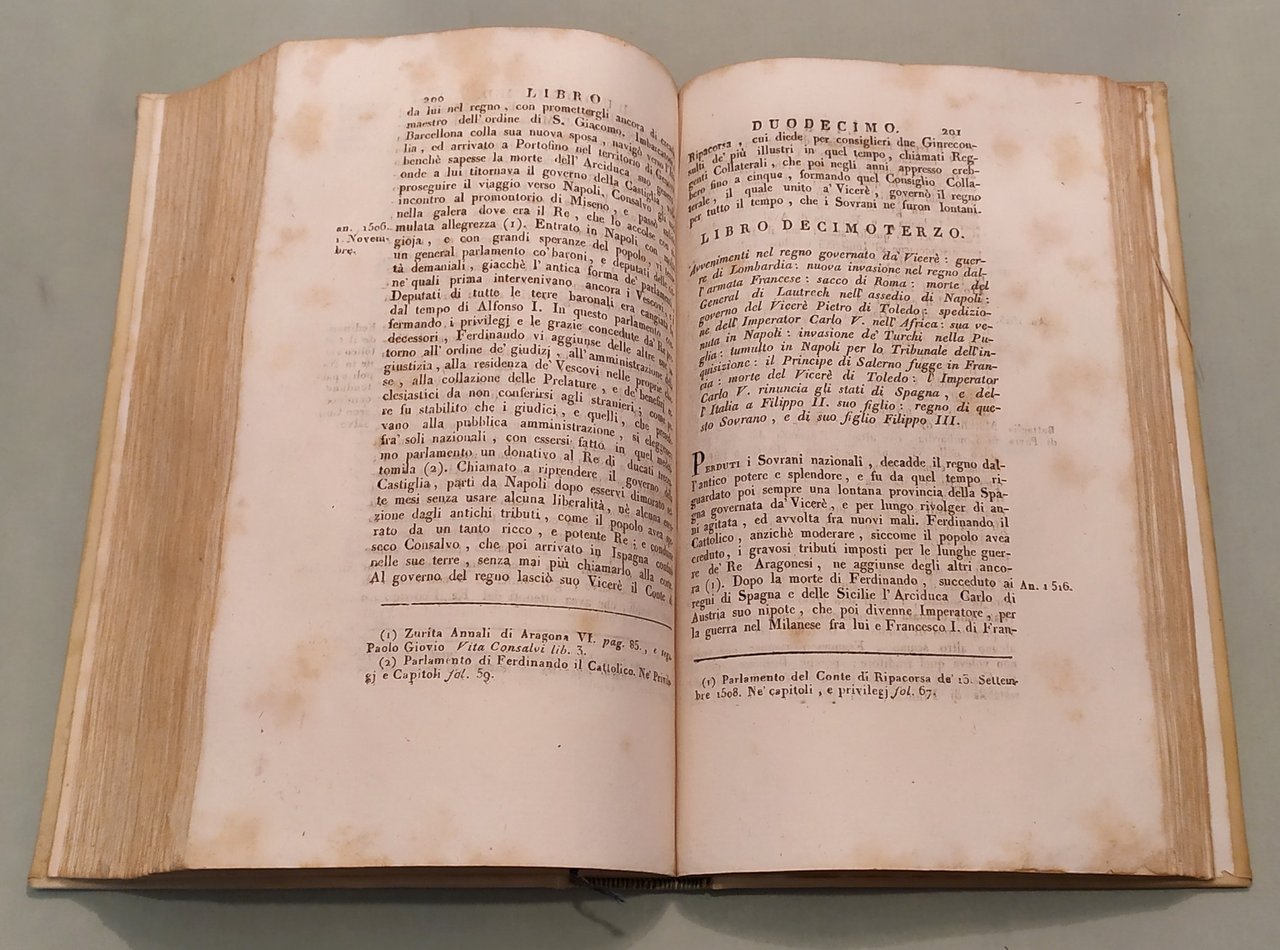 200 LIBRO
da lui nel regno, con promettergli ancora di
maestro dell'ordine di S. Giacomo. Imbarcatosi
Barcellona colla sua nuova sposa, navigò verso l'
lia, ed arrivato a Portofino nel territorio di
benchè sapesse la morte dell'Arciduca suo genero
onde a lui titornava il governo della Castiglia,
proseguire il viaggio verso Napoli, Consalvo gli
incontro al promontorio di Miseno, e passò
nella galera dove era il Re, che lo accolse con
an. 1506.
1 Novem-
bre.
mulata allegrezza (1). Entrato in Napoli con
gioja, e con grandi speranze del popolo, vi
un general parlamento co' baroni, e deputati delle
tà demaniali, giacchè l'antica forma de' parlamenti
ne' quali prima intervenivano ancora i Vescovi,
Deputati di tutte le terre baronali era cangiata
dal tempo di Alfonso I. In questo parlamento con-
fermando i privilegj e le grazie concedute da' Re
decessori, Ferdinando vi aggiunse delle altre
torno all'ordine de' giudizj, all'amministrazione
giustizia, alla residenza de' Vescovi nelle proprie
se, alla collazione delle Prelature, e de' benefizj
clesiastici da non conferirsi agli stranieri; come
re fu stabilito che i giudici, e quelli, che
vano alla pubblica amministrazione, si eleggessero
fra' soli nazionali, con essersi fatto in quel
mo parlamento un donativo al Re di ducati
tomila (2). Chiamato a riprendere il governo della
Castiglia, partì da Napoli dopo esservi dimorato
te mesi senza usare alcuna liberalità, nè alcuna
zione dagli antichi tributi, come il popolo avea
rato da un tanto ricco, e potente Re; e condusse
seco Consalvo, che poi arrivato in Ispagna confinò
nelle sue terre, senza mai più chiamarlo alla corte.
Al governo del regno lasciò suo Vicerè il Conte
(1) Zurita Annali di Aragona VI. pag. 85., e seg.
Paolo Giovio Vita Consalvi lib. 3.
(2) Parlamento di Ferdinando il Cattolico. Ne' Privile-
gj e Capitoli fol. 59.
DUODECIMO. 201
Ripacorsa, cui diede per consiglieri due Ginrecon-
sulti de' più illustri in quel tempo, chiamati Reg-
genti Collaterali, che poi negli anni appresso creb-
bero fino a cinque, formando quel Consiglio Colla-
terale, il quale unito a' Vicerè, governò il regno
per tutto il tempo, che i Sovrani ne furon lontani.
LIBRO DECIMOTERZO.
Avvenimenti nel regno governato da' Vicerè: guer-
re di Lombardia: nuova invasione nel regno dal-
l'armata Francese: sacco di Roma: morte del
General di Lautrech nell'assedio di Napoli:
governo del Vicerè Pietro di Toledo: spedizio-
ne dell'Imperator Carlo V. nell'Africa: sua ve-
nuta in Napoli: invasione de' Turchi nella Pu-
glia: tumulto in Napoli per lo Tribunale dell'in-
quisizione: il Principe di Salerno fugge in Fran-
cia: morte del Vicerè di Toledo: l'Imperator
Carlo V. rinuncia gli stati di Spagna, e del-
l'Italia a Filippo II. suo figlio: regno di que-
sto Sovrano, e di suo figlio Filippo III.
PERDUTI i Sovrani nazionali, decadde il regno dal-
l'antico potere e splendore, e fu da quel tempo ri-
guardato poi sempre una lontana provincia della Spa-
gna governata da' Vicerè, e per lungo rivolger di an-
ni agitata, ed avvolta fra nuovi mali. Ferdinando il
Cattolico, anzichè moderare, siccome il popolo avea
creduto, i gravosi tributi imposti per le lunghe guer-
re de' Re Aragonesi, ne aggiunse degli altri anco-
ra (1). Dopo la morte di Ferdinando, succeduto ai
An. 1516.
regni di Spagna e delle Sicilie l'Arciduca Carlo di
Austria suo nipote, che poi divenne Imperatore, per
la guerra nel Milanese fra lui e Francesco I. di Fran-
(1) Parlamento del Conte di Ripacorsa de' 13. Settem-
bre 1508. Ne' capitoli, e privilegj fol. 67.